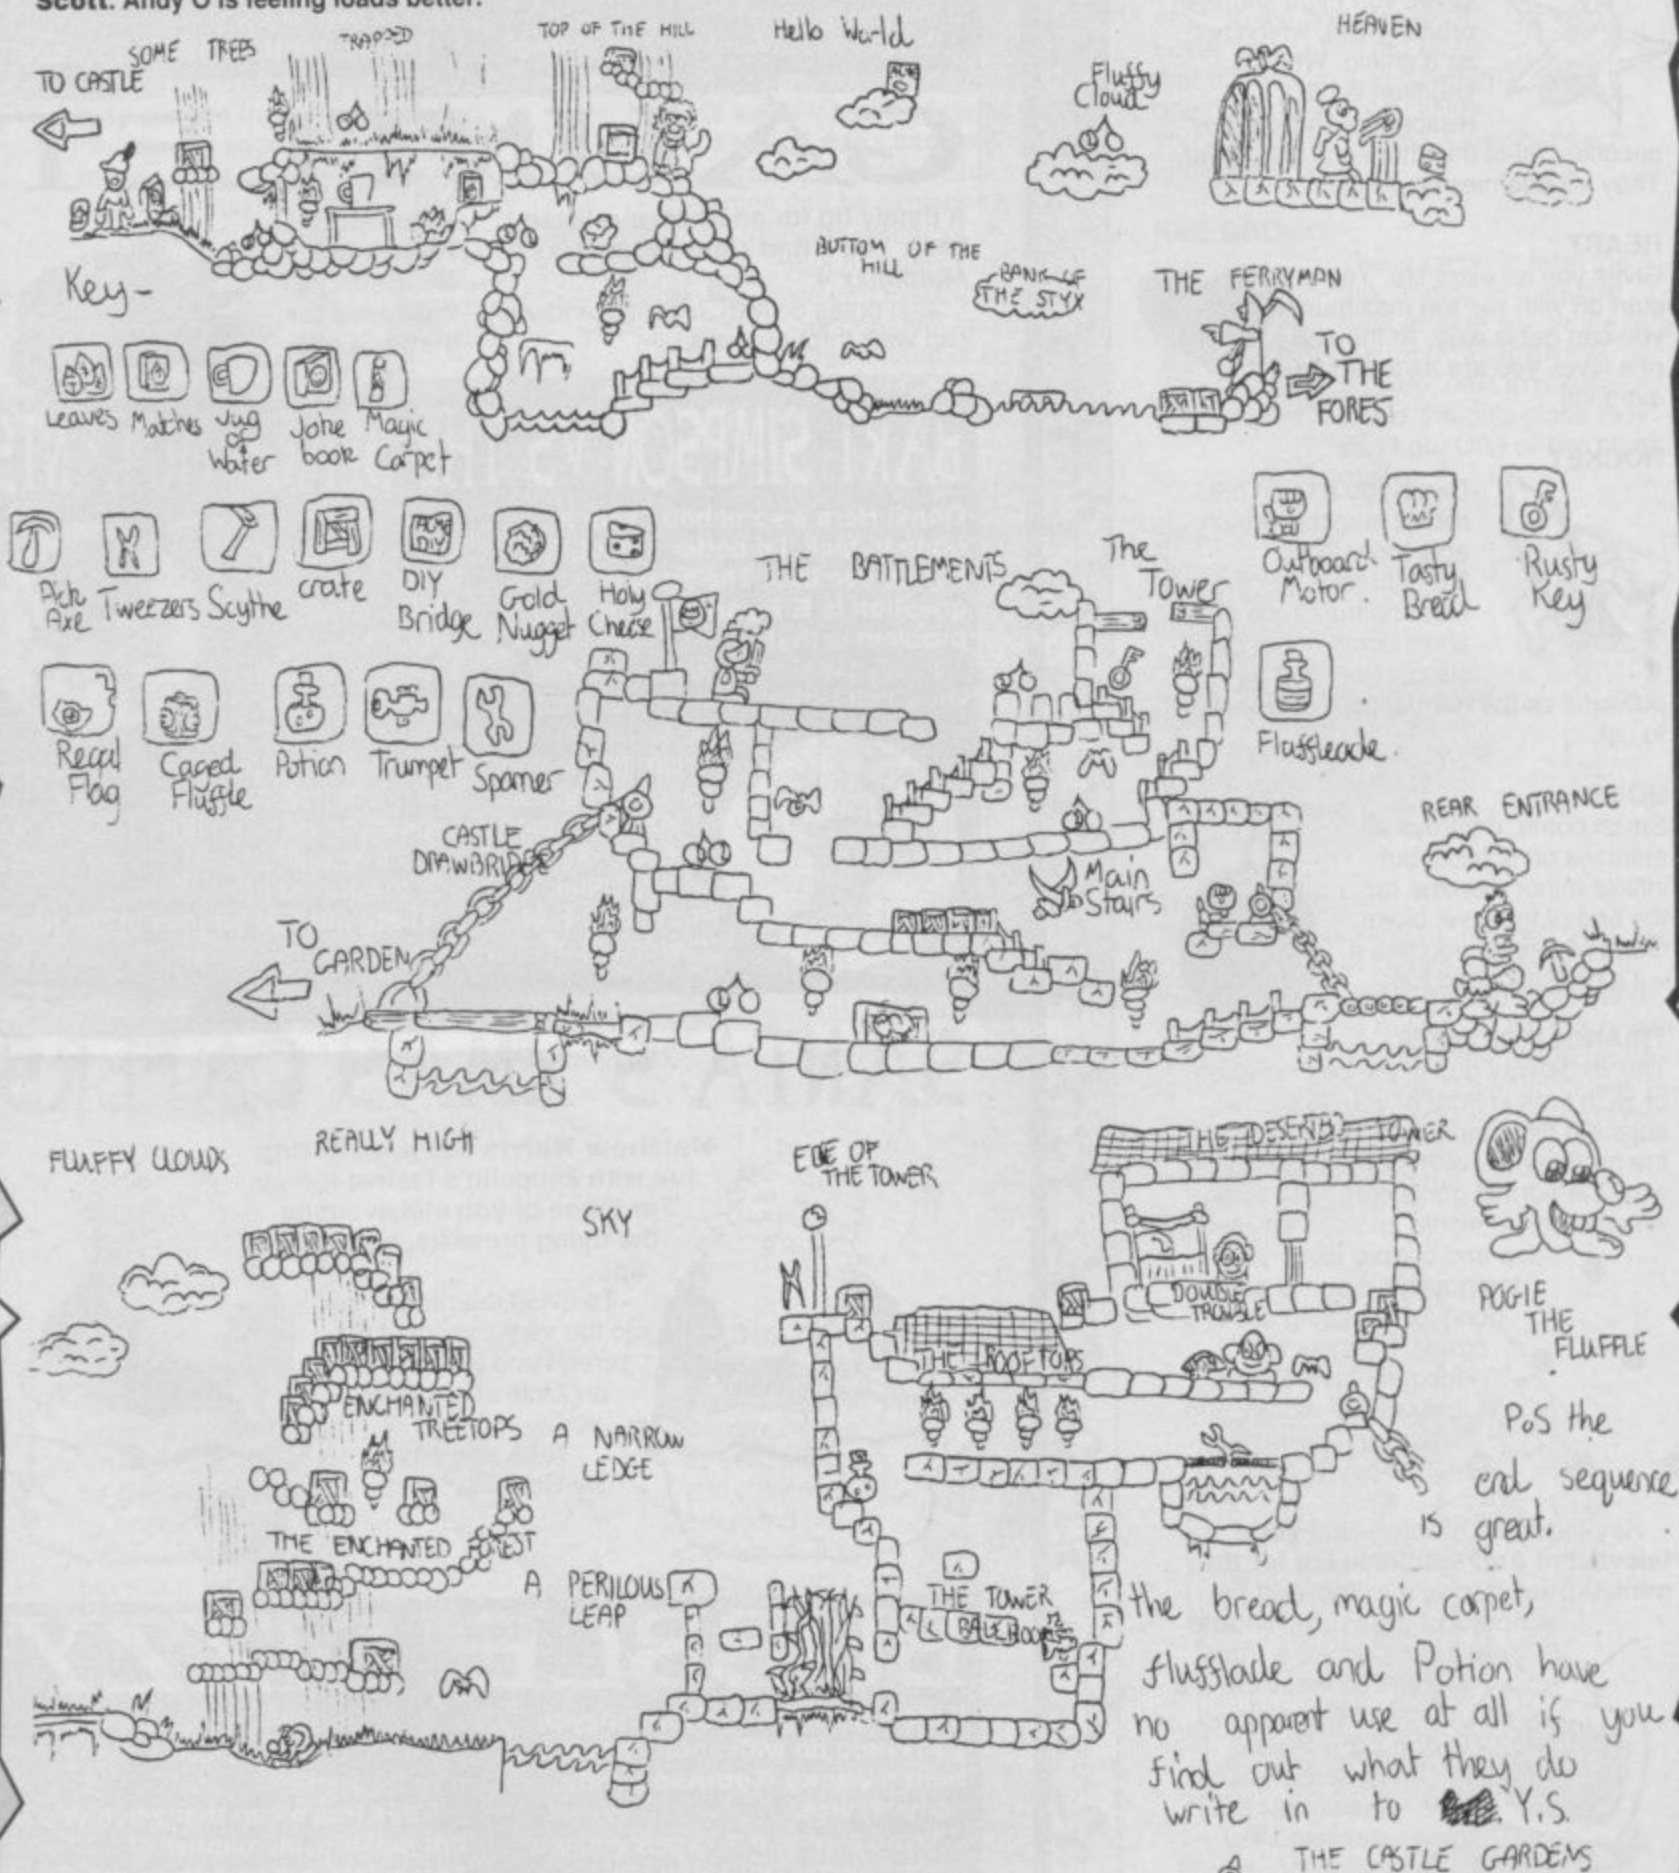 Scott: Andy O is feeling loads better.
SOME TREES
TRAPPED
TOP OF THE HILL
Hello World
HEAVEN
TO CASTLE
Fluffy
Cloud
Key-
BUTTOM OF THE
HILL
BANK OF
THE STYX
THE FERRYMAN
TO
THE
FORES
Leaves
Matches
Jug
of
Water
Joke
book
Magic
Carpet
Pick
Axe
Tweezers
Scythe
crate
ACME
DIY
DIY
Bridge
Gold
Nugget
Holy
Cheese
THE BATTLEMENTS
The
Tower
Outboard
Motor.
Tasty
Bread
Rusty
Key
Regal
Flag
Caged
Fluffle
Potion
Trumpet
Spanner
Flaffleade.
CASTLE
DRAWBRIDGE
REAR ENTRANCE
Main
Stairs
TO
GARDEN
FLUFFY CLOUDS
REALLY HIGH
SKY
EDE OF
THE TOWER
THE DESERTED TOWER
DOUBLE
TROUBLE
POGIE
THE
FLUFFLE
THE ROOFTOPS
ENCHANTED
TREETOPS
A NARROW
LEDGE
THE ENCHANTED FOREST
A PERILOUS
LEAP
THE TOWER
P.S the
end sequence
is great.
the bread, magic carpet,
flufflade and Potion have
no apparent use at all if you
find out what they do
write in to Y.S.
THE CASTLE GARDENS